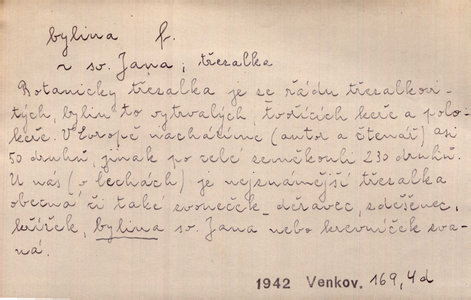 bylina f.
~ sv. Jana; třezalka
Botanicky třezalka je ze řádu třezalkovi-
tých, bylin to vytrvalých, tvořících keře a polo-
keře. V Evropě nacházíme (autor a čtenář) asi
50 druhů, jinak po celé zeměkouli 230 druhů.
U nás (v Čechách) je nejznámější třezalka
obecná či také zvoneček, děravec, zděšenec,
křížek, bylina sv. Jana nebo krevníček zva-
ná.
1942 Venkov. 169, 4d